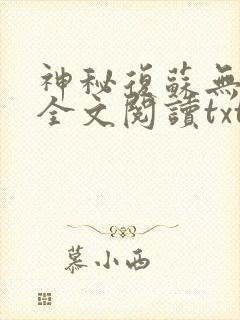 神秘復蘇無
全文閱讀txt
慕小西